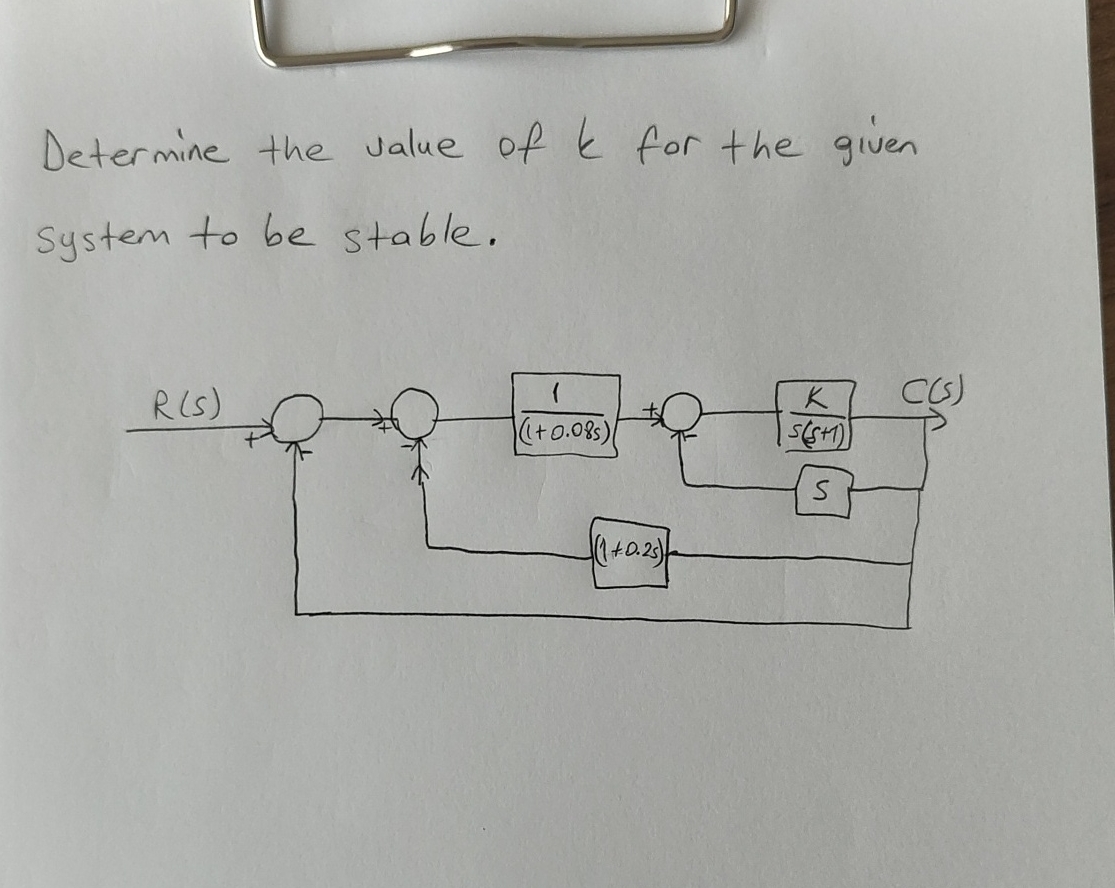 Determine the value of k for the given
system to be stable.
R(s)
C(s)
1
(1+0.08s)
K
s(s+1)
+
-
+
-
+
-
S
(1+0.2s)